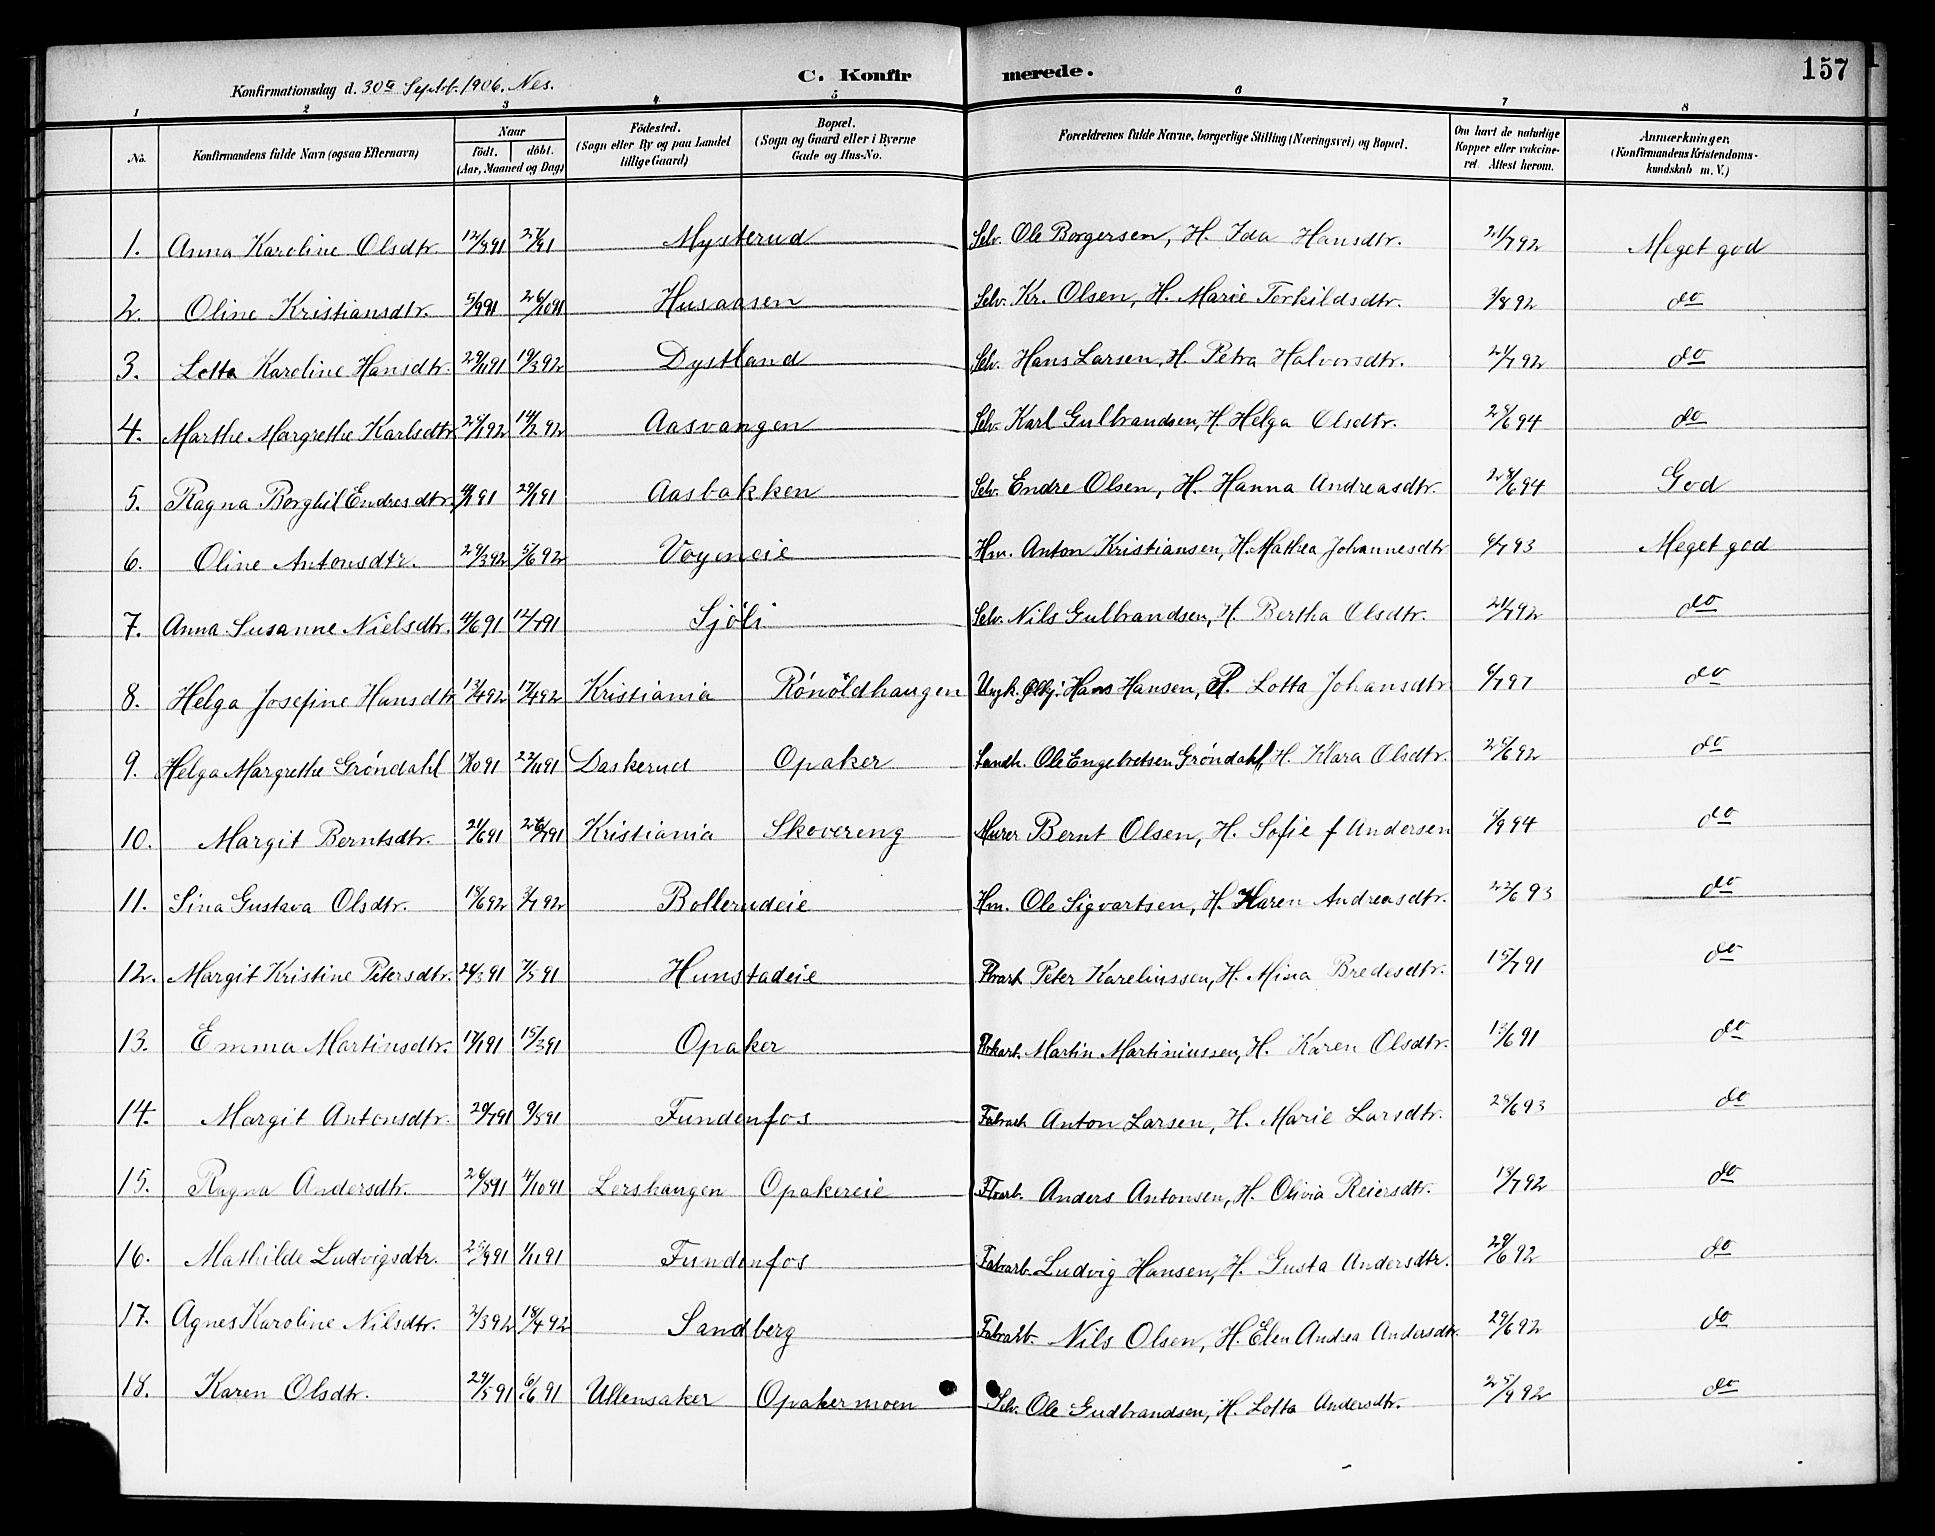 C. Konfirmerede.
157
Konfirmationsdag d. 30te Septbr. 1906. Nes.
1 2 3 4 5 6 7 8
No.
Konfirmandens fulde Navn (ogsaa Efternavn)
Naar
födt. döbt.
(Aar, Maaned og Dag)
Födested.
(Sogn eller By og paa Landet
tillige Gaard)
Bopæl.
(Sogn og Gaard eller i Byerne
Gade og Hus-No.
Forældrenes fulde Navne, borgerlige Stilling (Næringsvei) og Bopæl.
Om havt de naturlige
Kopper eller vakcine-
ret. Attest herom.
Anmærkninger.
(Konfirmandens Kristendoms-
kundskab m. V.)
1. Anna Karoline Olsdtr. Mysterud Selv. Ole Borgersen, H. Ida Hansdtr. 21/7 92 Meget god
2. Oline Kristiansdtr. 5/9 91 26/10 91 Husaasen Selv. Kr. Olsen, H. Marie Torkildsdtr. 3/8 92 do
3. Lotta Karoline Hansdtr. 29/11 91 19/3 92 Dystland Selv. Hans Larsen, H. Petra Halvorsdtr. 21/7 92 do
4. Marthe Margrethe Karlsdtr. 25/1 92 14/2 92 Aasvangen Selv. Karl Gulbrandsen, H. Helga Olsdtr. do
5. Ragna Borghil Endresdtr. Aasbakken Selv. Endre Olsen, H. Hanna Andreasdtr. 28/6 94 God
6. Oline Antonsdtr. 29/3 92 5/6 92 Voyeneie Hm. Anton Kristiansen, H. Mathea Johannesdtr 6/7 93 Meget god
7. Anna Susanne Nielsdtr. 12/7 91 Sjöli Selv. Nils Gulbrandsen, H. Bertha Olsdtr. 21/7 92 do
8. Helga Josefine Hansdtr 13/4 92 17/4 92 Kristiania Rönöldhaugen Hans Hansen, P. Lotta Johansdtr. 6/7 97 do
9. Helga Margrethe Gröndahl 22/11 91 Daskerud Opaker Landh. Ole Engebretsen Gröndahl, H. Klara Olsdtr. do
10. Margit Berntsdtr. 21/6 91 26/7 91 Kristiania Skovereng Murer Bernt Olsen, H. Sofie f Andersen 5/9 94 do
11. Sina Gustava Olsdtr. 18/6 92 3/7 92 Bollerudeie Hm. Ole Sigvartsen, H. Karen Andreasdtr. 22/6 93 do
12. Margit Kristine Petersdtr. 24/3 91 7/5 91 Hunstadeie Peter Kareliussen, H. Mina Bredesdtr. 15/7 91 do
13. Emma Martinsdtr. 17/1 91 15/3 91 Opaker Martin Martiniussen, H. Karen Olsdtr. 13/6 91 do
14. Margit Antonsdtr. Fundenfos Fabrarb. Anton Larsen, H. Marie Larsdtr. do
15. Ragna Andersdtr. 4/10 91 Lershaugen Opakereie Anders Antonsen, H. Olivia Reiersdtr. do
16. Mathilde Ludvigsdtr. 25/9 91 1/11 91 Fundenfos Fabrarb. Ludvig Hansen, H. Gusta Andersdtr. 29/6 92 do
17. Agnes Karoline Nilsdtr. 2/3 92 18/4 92 Sandberg Fabrarb. Nils Olsen, H. Elen Andrea Andersdtr. 29/6 92 do
18. Karen Olsdtr. 24/5 91 6/6 91 Ullensaker Opakermoen Selv. Ole Gudbrandsen, H. Lotta Andersdtr. 25/9 92 do